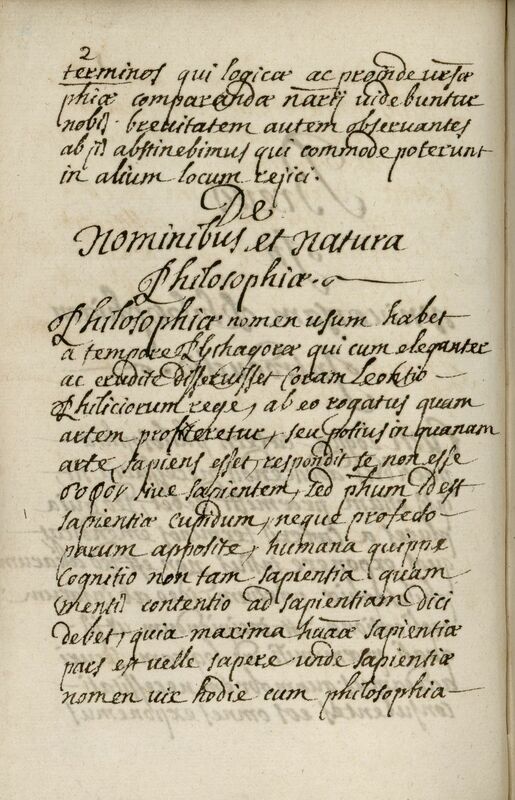 2
terminos qui logicæ ac proinde versæ
phiæ comparandæ narij videbuntur
nobis. brevitatem autem observantes
ab ijs abstinebimus qui commode poterunt
in alium locum rejici.
De
Nominibus et natura
Philosophiæ.
Philosophiæ nomen usum habet
a tempore Pythagoræ qui cum eleganter
ac erudite disseruisset Coram Leontio
Philiciorum rege, ab eo rogatus quam
artem profiteretur, seu potius in quanam
arte sapiens esset, respondit se non esse
σοφον sive sapientem, sed phum idest
sapientiæ cupidum, neque profecto
parum apposite, humana quippe
Cognitio non tam sapientia quam
mentis contentio ad sapientiam dici
debet, quia maxima hanæ sapientiæ
pars est velle sapere unde sapientiæ
nomen vix hodie cum philosophia